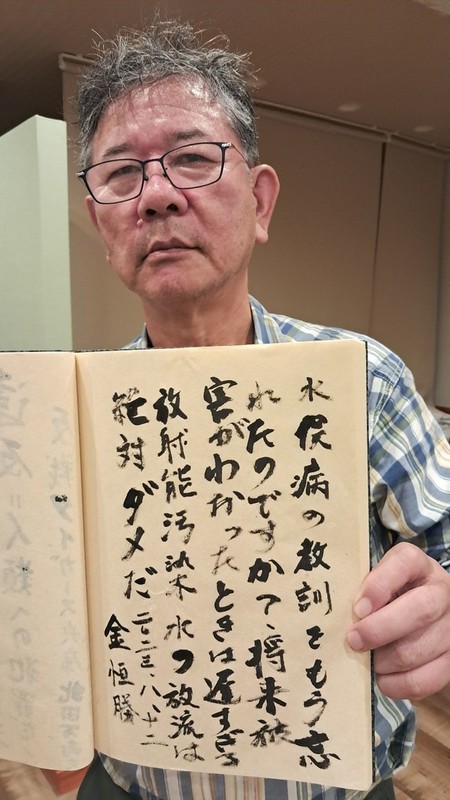 水俣病の教訓をもう忘
れたのですか?、将来被
害がわかったときは遅すぎる
放射能汚染水の放流は
絶対ダメだ
二〇二三、八、十二
金恒勝